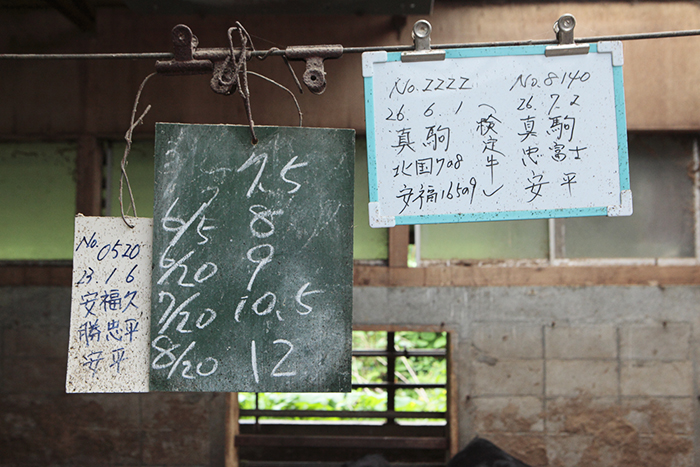 No. 0520
23. 1 6
安福久
勝忠平
安平
7.5
6/5 8
6/20 9
7/20 10.5
8/20 12
No. 2222
26. 6. 1
真駒
北国7の8
安福165の9
検定牛
No. 8140
26. 7. 2
真駒
忠富士
安平